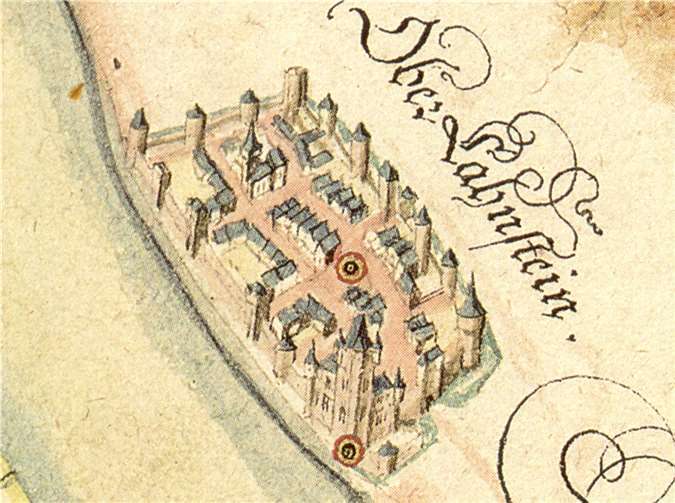 Ober Lahnstein.